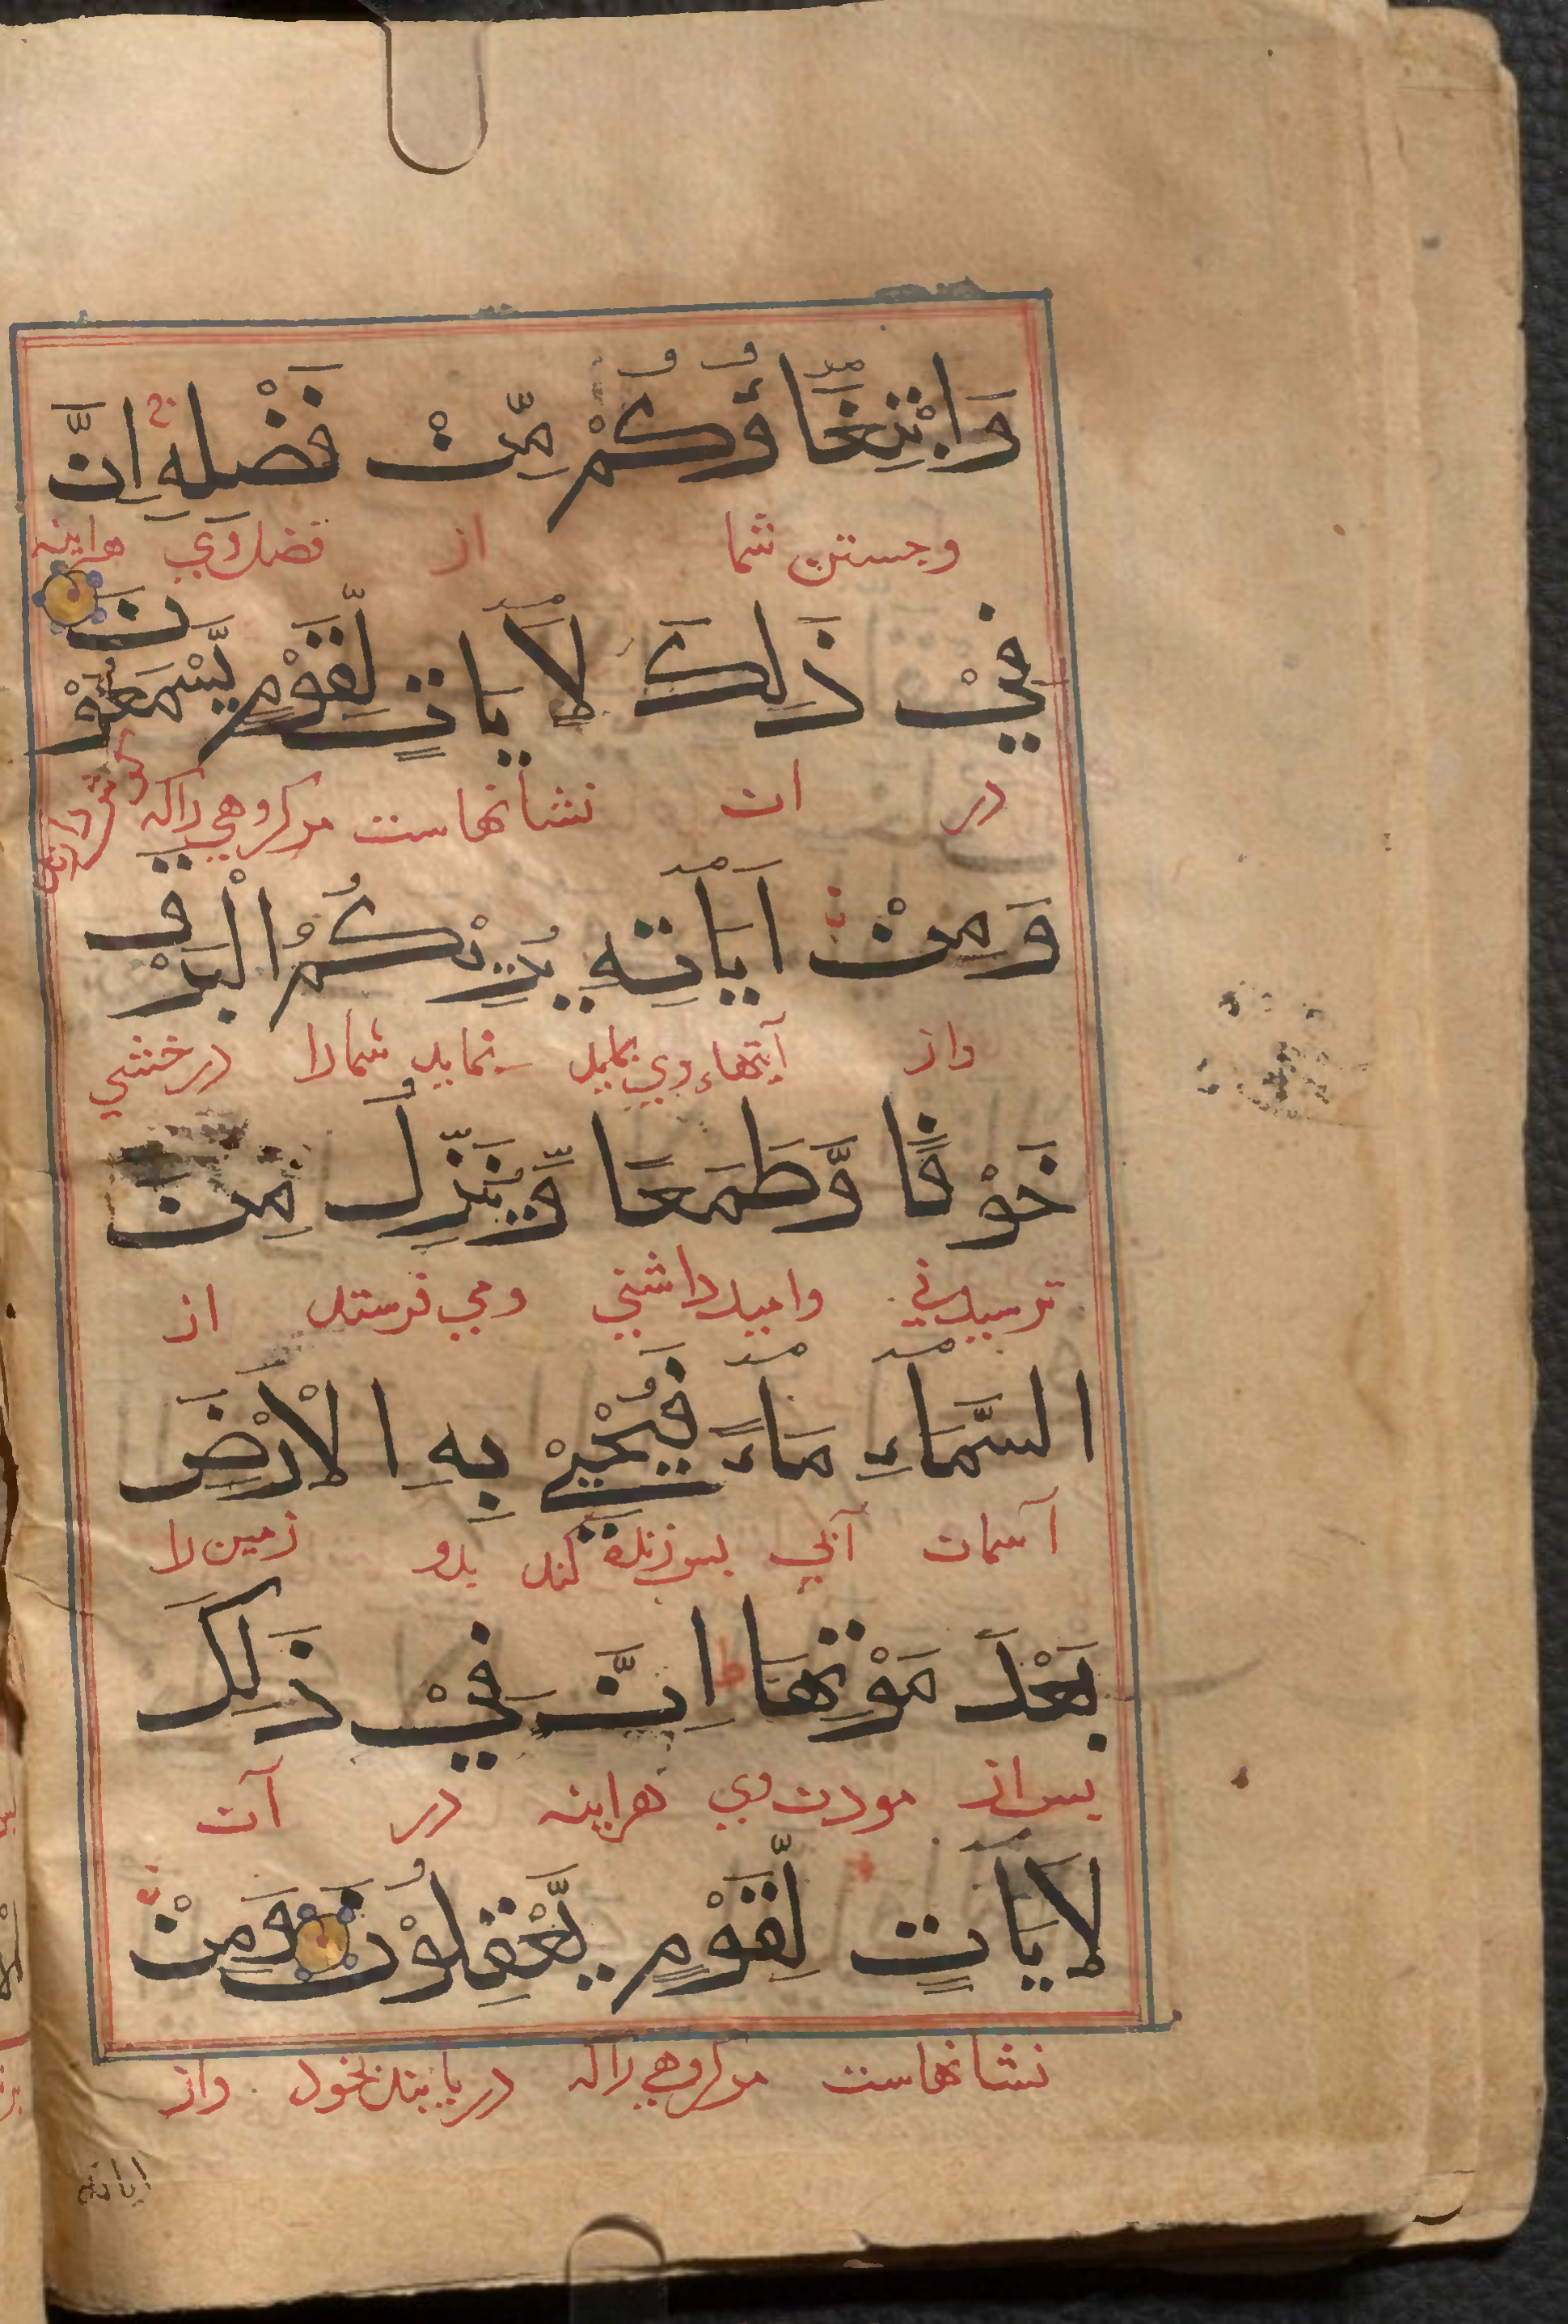 وَابْتِغَاؤُكُمْ مِّنْ فَضْلِهِ اِنَّ
وجستن شما از فضل وي هراينه
فِيْ ذَلِكَ لَاَيَاتٍ لِّقَوْمٍ يَّسْمَعُوْنَ
در ان نشانهاست مر گروهي راكه گوش دارند
وَمِنْ اَيَاتِهِ يُرِيْكُمُ الْبَرْقَ
واز آيتهاء وي بنمايد شمارا درخشي
خَوْفًا وَّطَمَعًا وَّيُنَزِّلُ مِنَ
ترسيدني واميد داشتني ومي فرستد از
السَّمَاءِ مَاءً فَيُحْيِيْ بِهِ الْاَرْضَ
آسمان آبي پس زنده كند بدو زمين را
بَعْدَ مَوْتِهَا ط اِنَّ فِيْ ذَلِكَ
پس از مردن وي هراينه در آن
لَاَيَاتٍ لِّقَوْمٍ يَّعْقِلُوْنَ وَمِنْ
نشانهاست مر گروهي راكه دريابند بخود واز
اياته